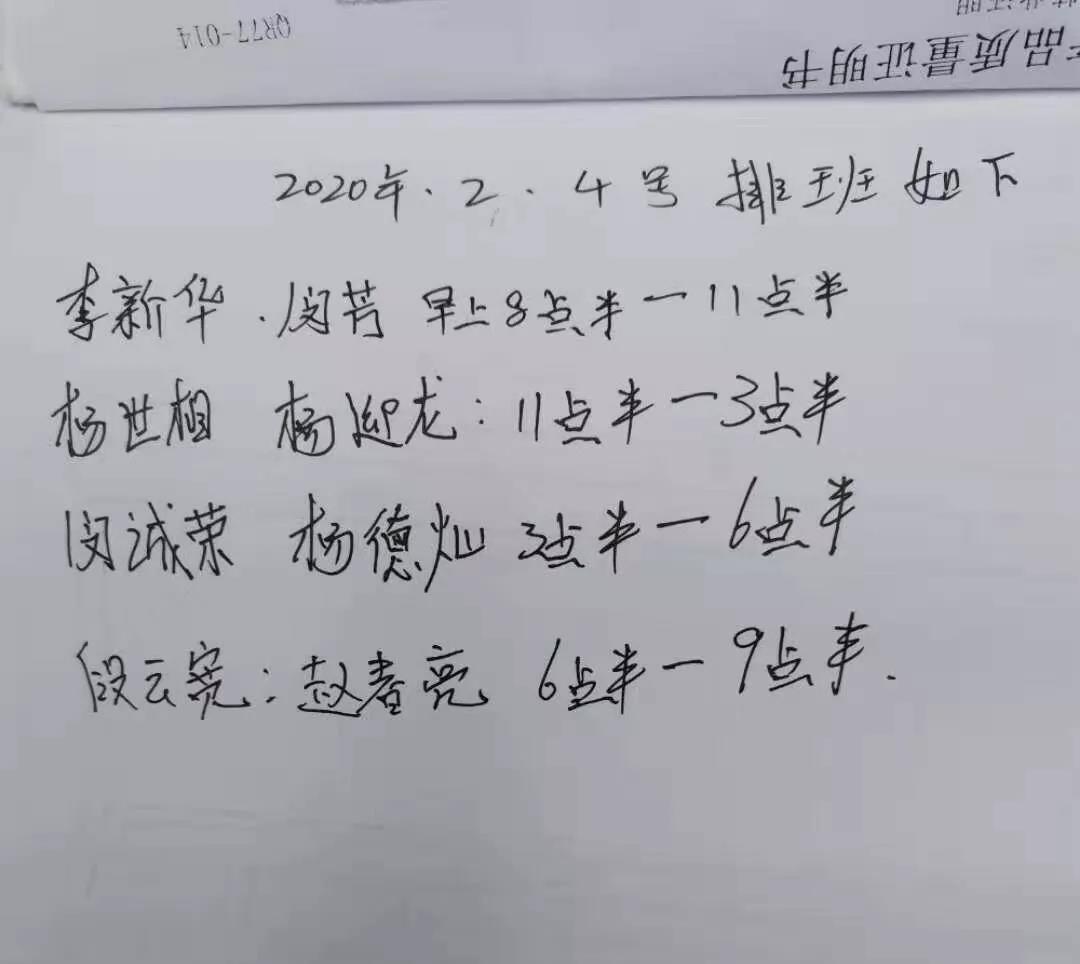 QR77-014
产品质量证明书
2020年.2.4号 排班如下
李新华.闵芳 早上8点半一11点半
杨世相 杨迎龙:11点半一3点半
闵诚荣 杨德灿 3点半一6点半
段云宽:赵春亮 6点半一9点半.